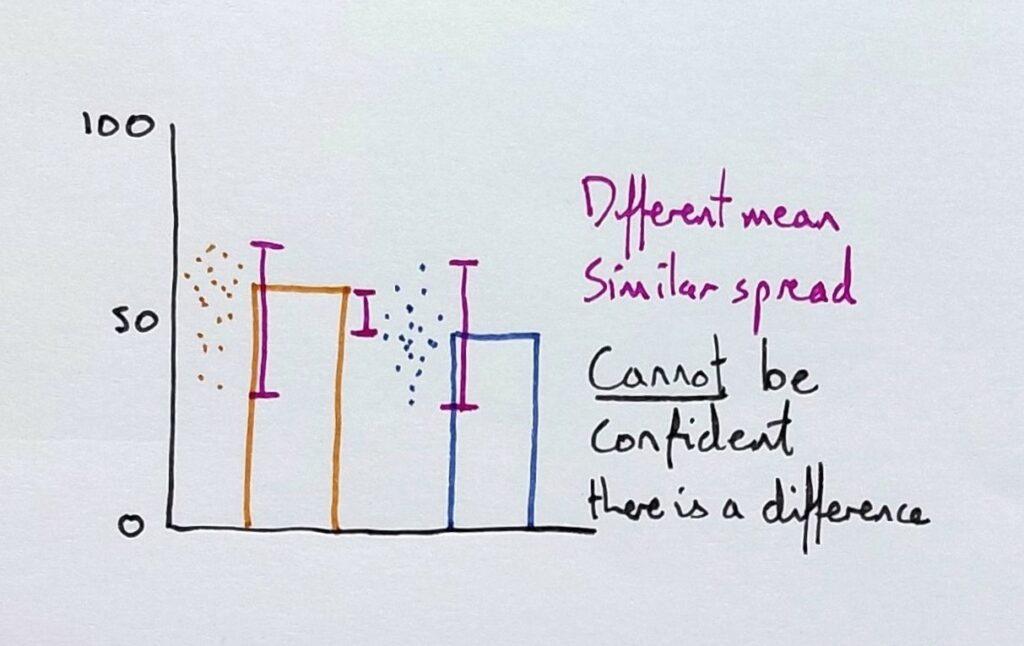 100
50
0
Different mean
Similar spread
Cannot be
confident
there is a difference